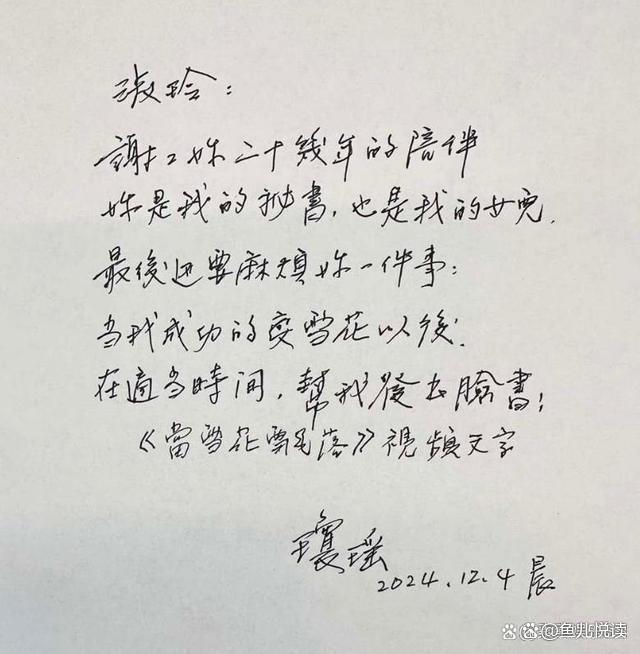 淑玲：
謝謝妳二十幾年的陪伴
妳是我的秘書，也是我的女兒.
最後还要麻煩妳一件事：
当我成功的变雪花以後.
在適当時间，幫我發出臉書；
《當雪花飄落》視頻文字
瓊瑤
2024.12.4 晨
鱼爿悦读